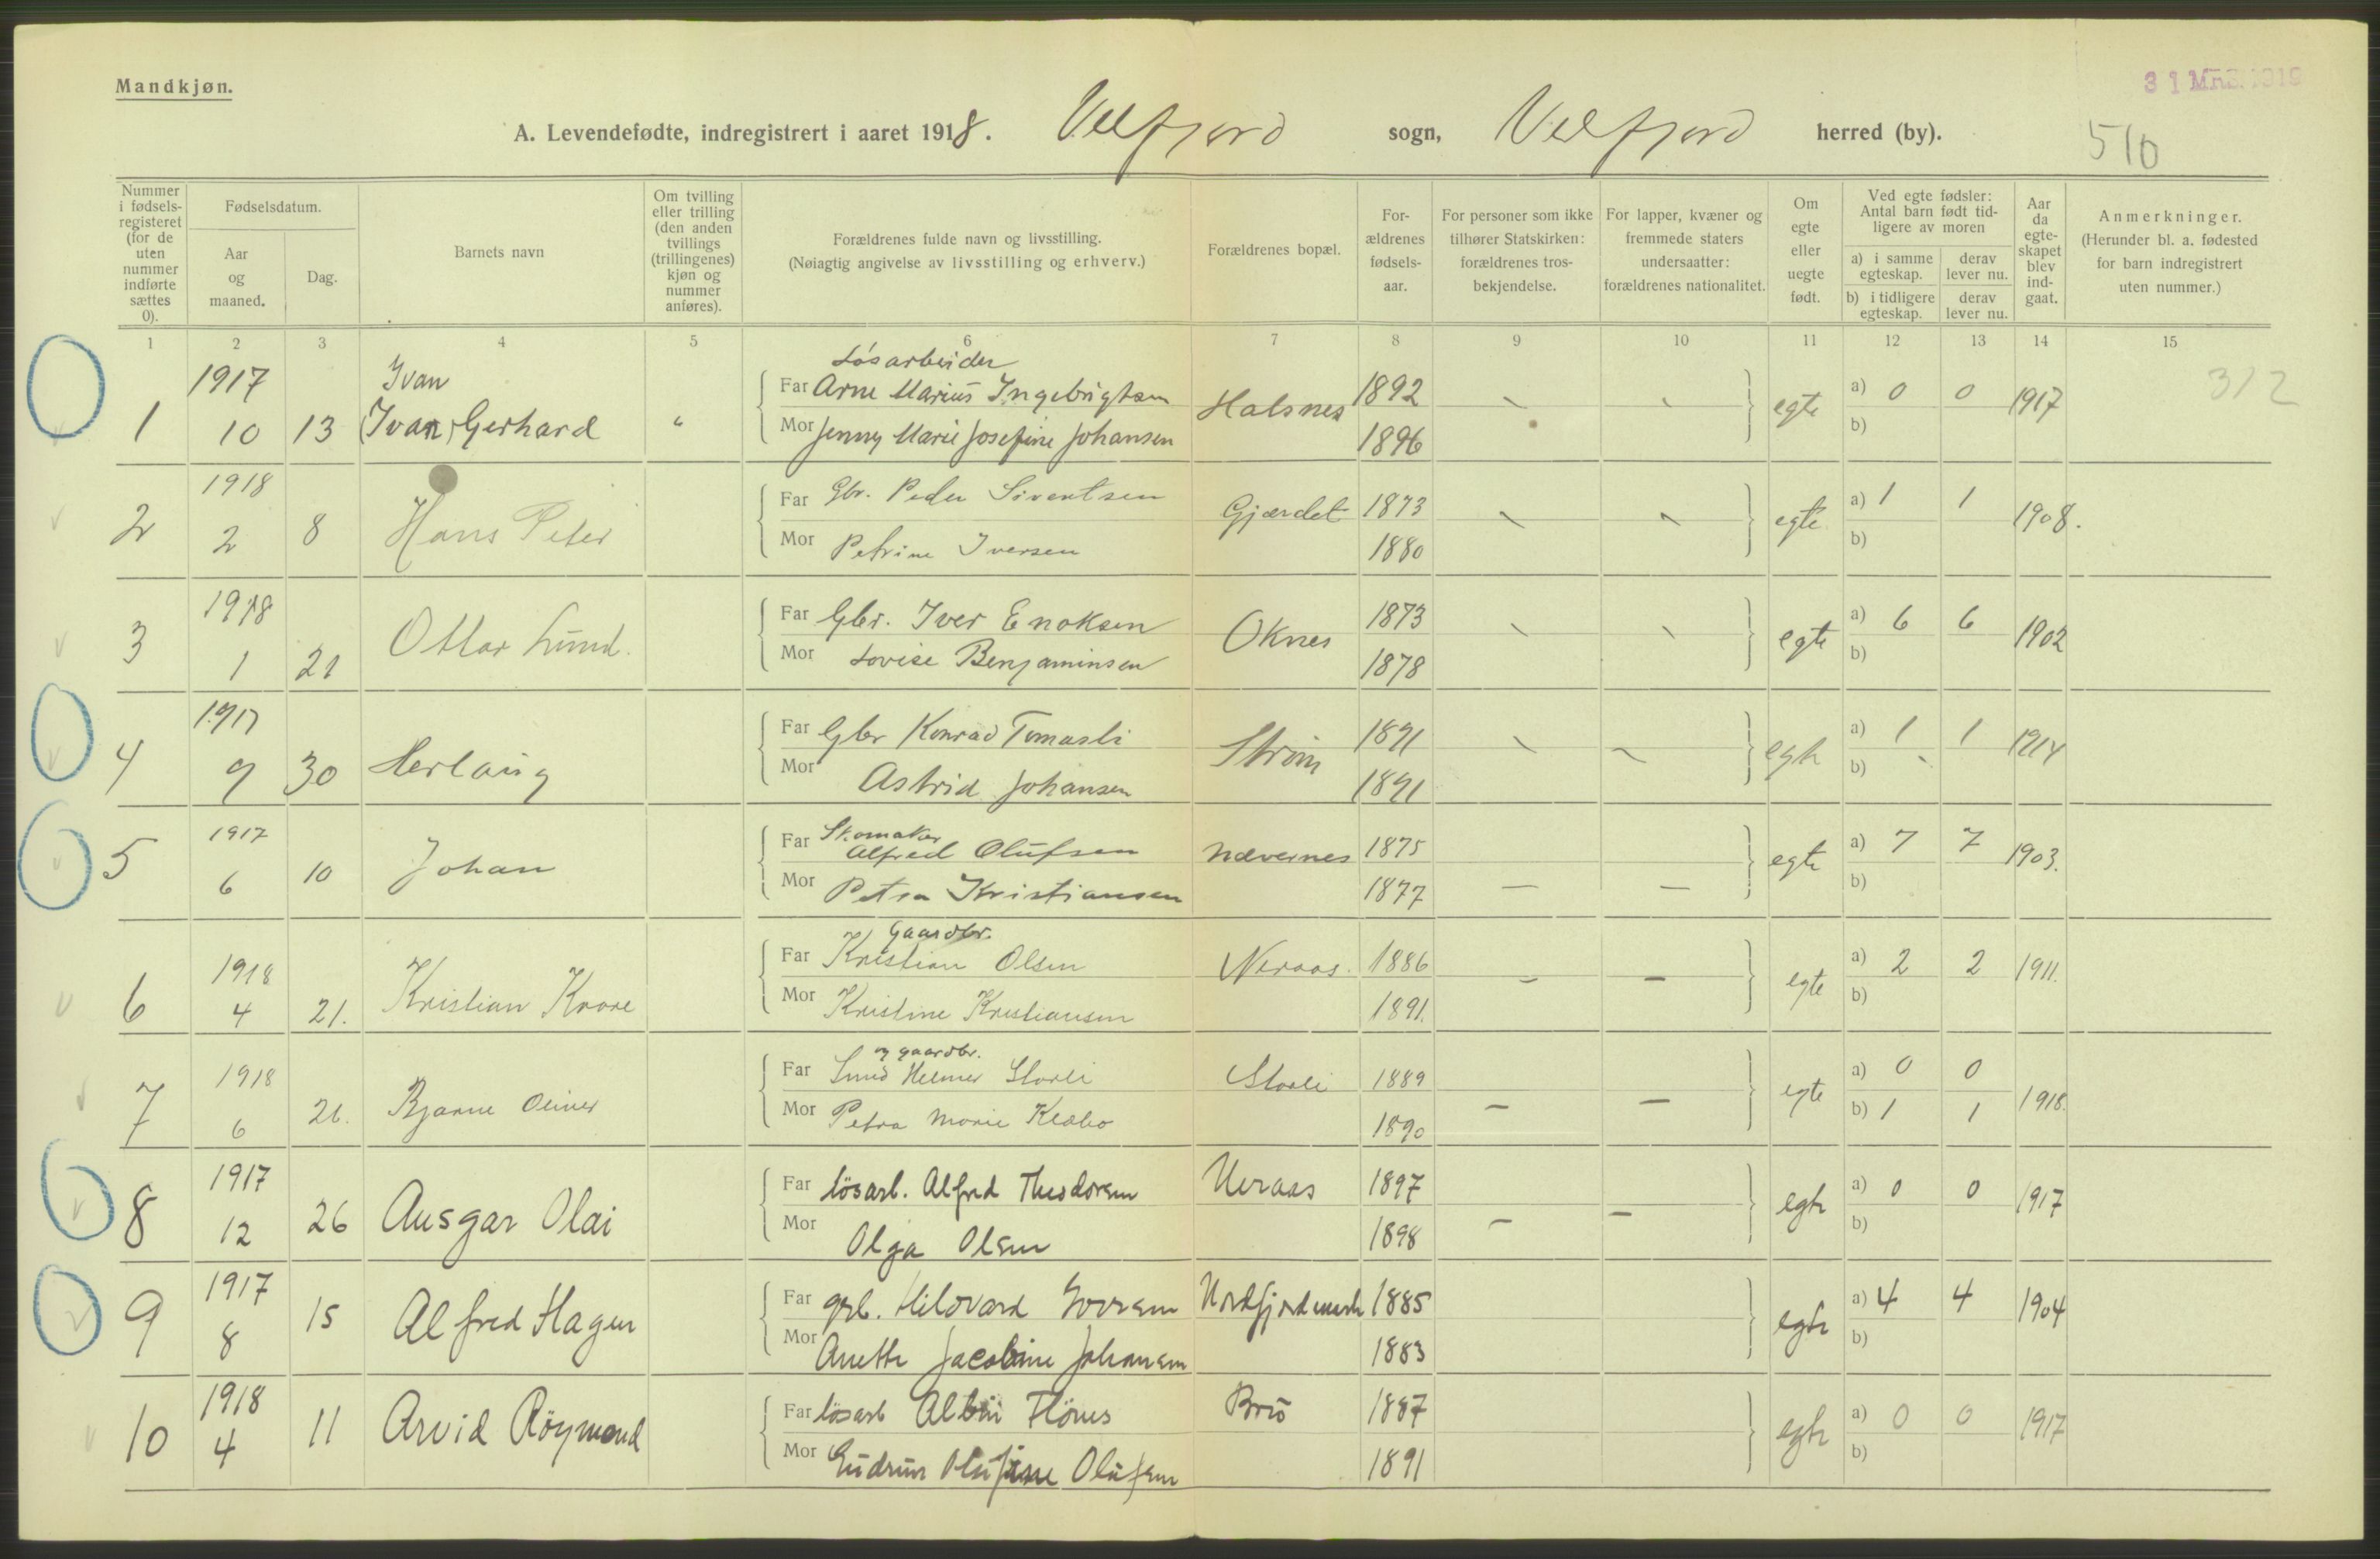 Mandkjøn.
31 MRS. 1919
A. Levendefødte, indregistrert i aaret 1918. Velfjord sogn, Velfjord herred (by).
510
Nummer i fødselsregisteret (for de uten nummer indførte sættes 0).
Fødselsdatum.
Aar og maaned.
Dag.
Barnets navn
Om tvilling eller trilling (den anden tvillings (trillingenes) kjøn og nummer anføres).
Forældrenes fulde navn og livsstilling.
(Nøiagtig angivelse av livsstilling og erhverv.)
Forældrenes bopæl.
Forældrenes fødselsaar.
For personer som ikke tilhører Statskirken: forældrenes trosbekjendelse.
For lapper, kvæner og fremmede staters undersaatter: forældrenes nationalitet.
Om egte eller uegte født.
Ved egte fødsler: Antal barn født tidligere av moren
a) i samme egteskap.
derav lever nu.
b) i tidligere egteskap.
derav lever nu.
Aar da egteskapet blev indgaat.
Anmerkninger.
(Herunder bl. a. fødested for barn indregistrert uten nummer.)
1 2 3 4 5 6 7 8 9 10 11 12 13 14 15
1917 Ivan Løsarbeider
Far Arne Marius Ingebrigtsen Halsnes 1892 egte a) 0 0 1917 312
1 10 13 (Ivan) Gerhard " Mor Jenny Marie Josefine Johansen 1896 b)
1918 Far Gbr. Peder Sivertsen Gjærdet 1873 egte a) 1 1 1908.
2 2 8 Hans Peter Mor Petrine Iversen 1880 b)
1918 Far Gbr. Iver Enoksen Oknes 1873 egte a) 6 6 1902
3 1 21 Ottar Lund. Mor Lovise Benjaminsen 1878 b)
1917 Far Gbr Konrad Tomasli Strøm 1891 egte a) 1 1 1914
4 9 30 Herlaug Mor Astrid Johansen 1891 b)
1917 Far Skomaker Alfred Olufsen Nævernes 1875 egte a) 7 7 1903.
5 6 10 Johan Mor Petra Kristiansen 1877 — — b)
Gaardbr.
1918 Far Kristian Olsen Neraas. 1886 — — egte a) 2 2 1911.
6 4 21. Kristian Kaare Mor Kristine Kristiansen 1891. b)
og gaardbr.
1918 Far Smed Helmer Storli Storli 1889 egte a) 0 0 1918.
7 6 Bjarne Oliver Mor Petra Marie 1890 — — b) 1 1
1917 Far løsarb. Alfred Theodorsen Neraas 1897 egte a) 0 0 1917
8 12 26 Ansgar Olai Mor Olga Olsen 1898 — — b)
1917 Far grb. Hildvard 1885 egte a) 4 4 1904
9 8 15 Alfred Hagen Mor Anette Jacobine Johansen 1883 b)
1918 Far løsarb Albin 1887 egte a) 0 0 1917
10 4 11 Arvid Röymond Mor Gudrun Olufine Olufsen 1891 b)